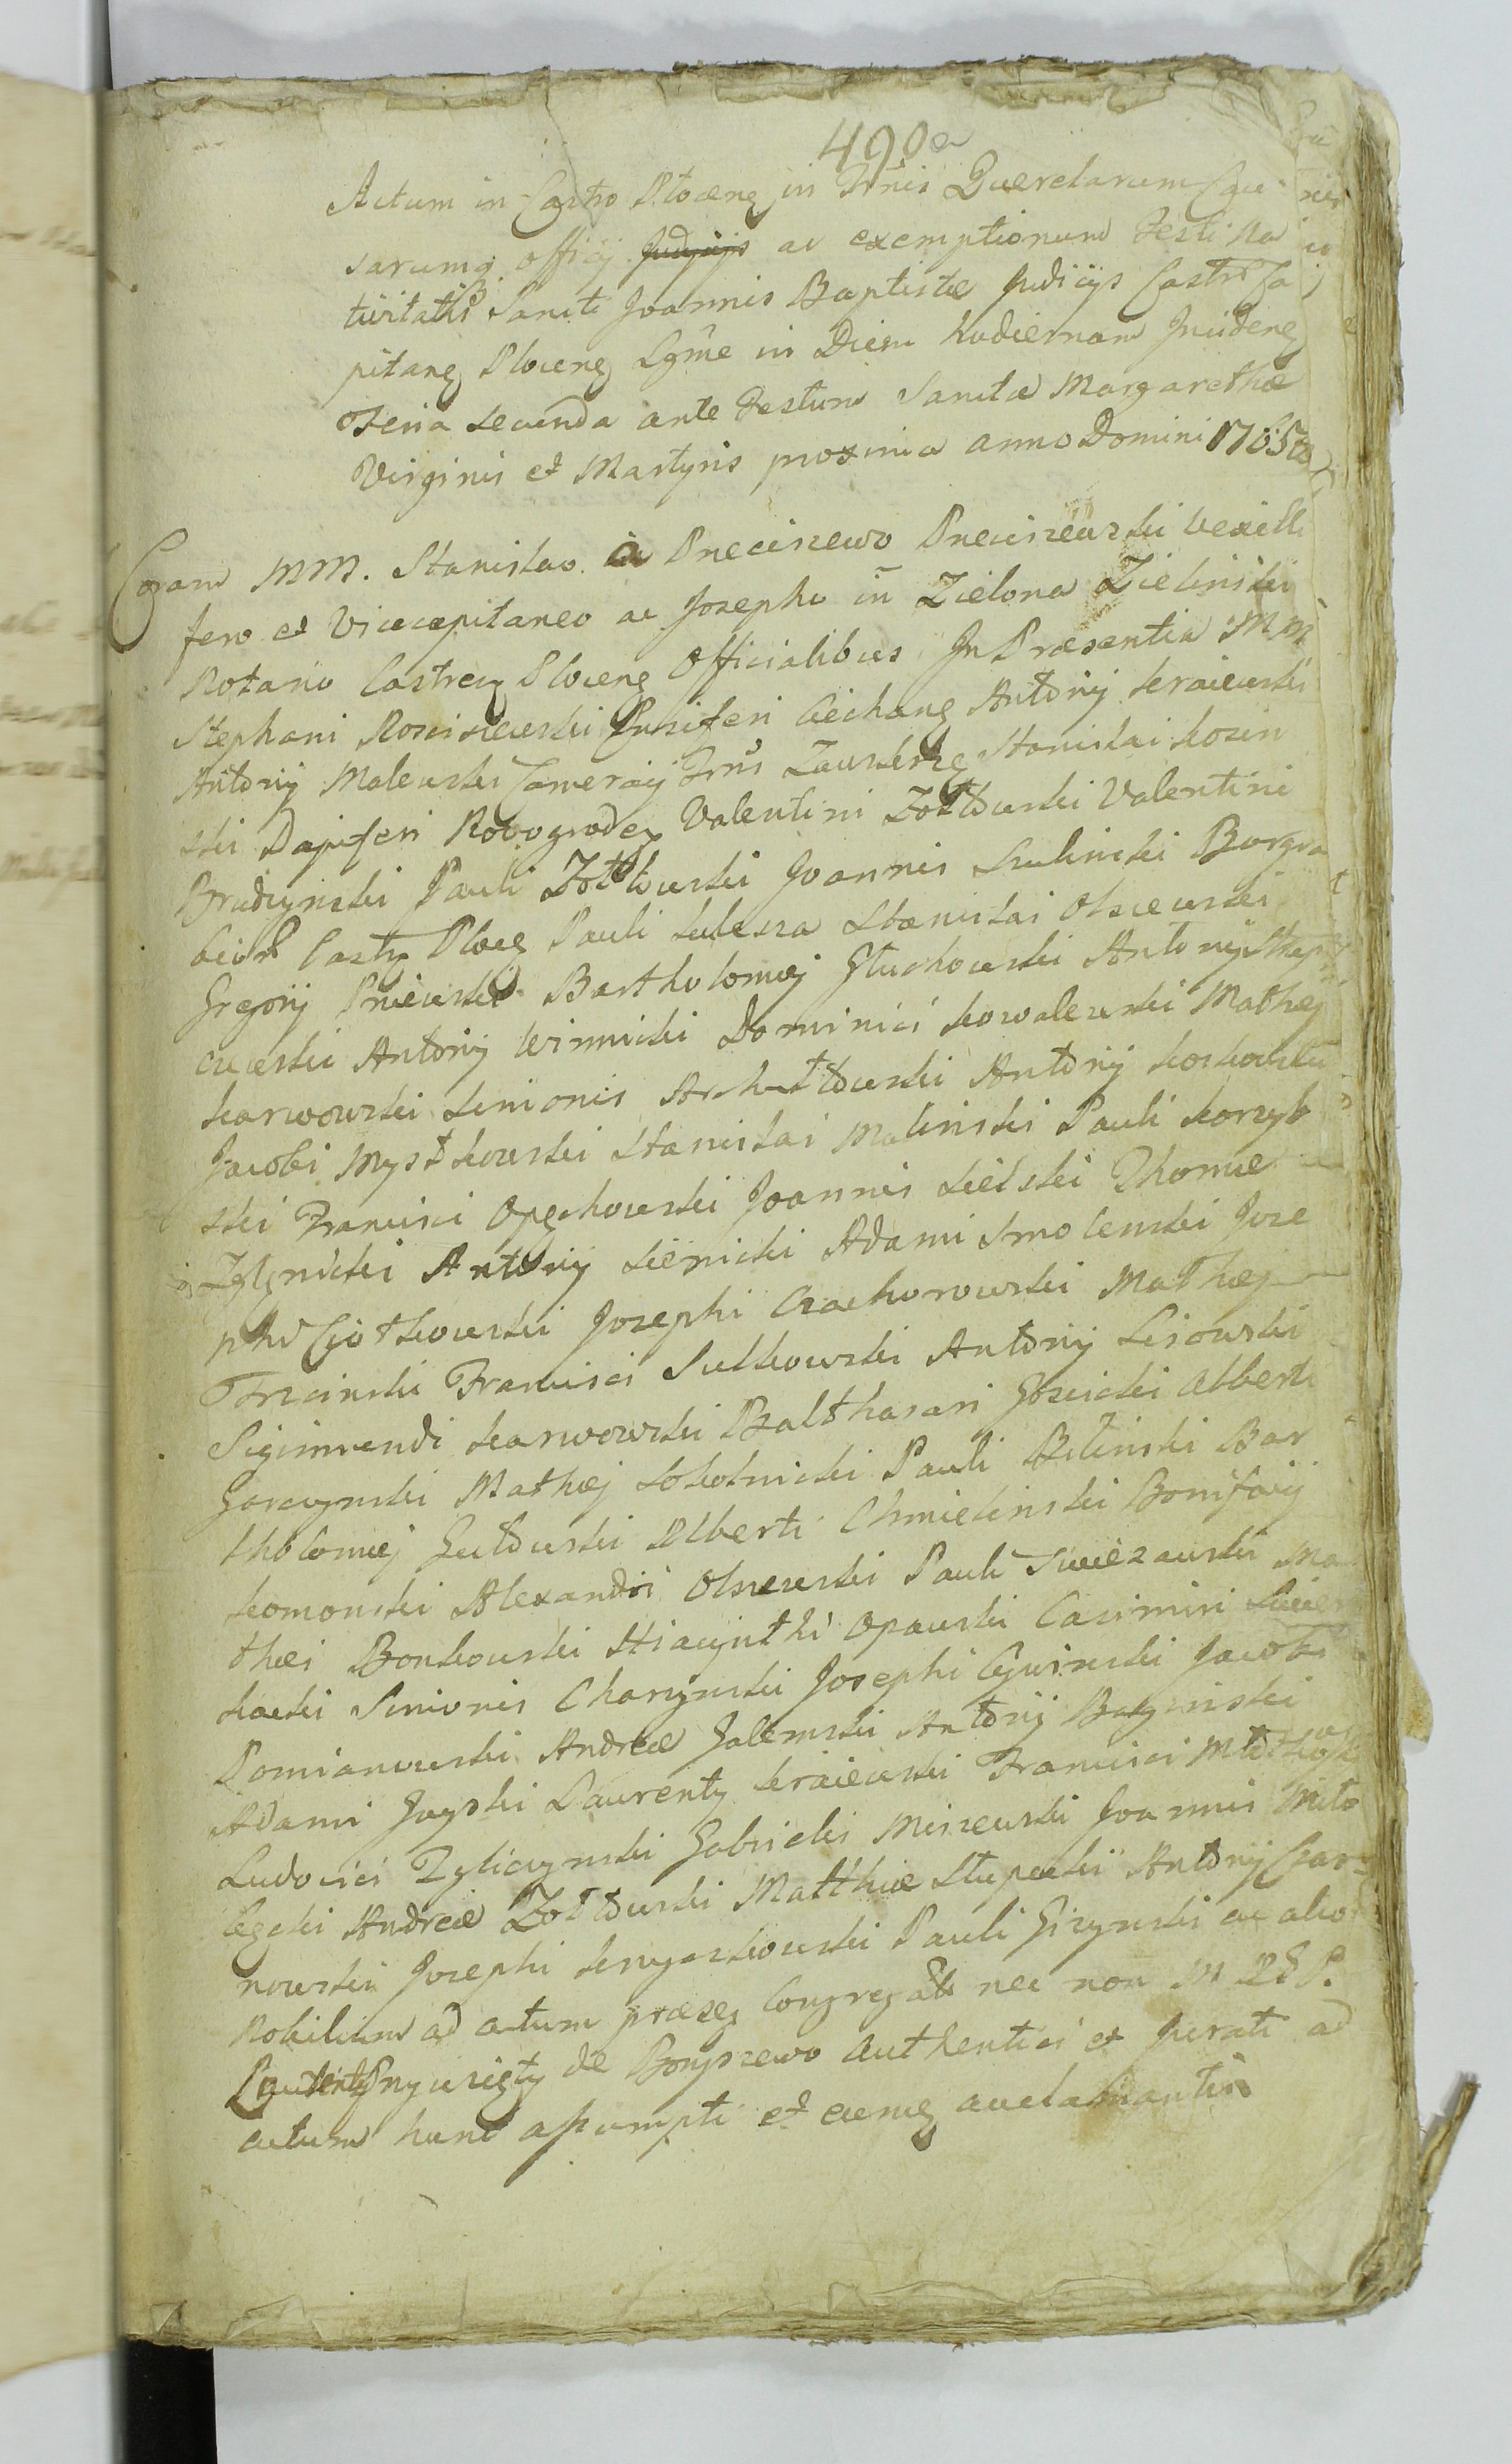 490a
Actum in Castro Plocen in Trnis Querelarum Cau
sarumq officij Judicijs ac exemptionum Festi Na
tivitatis Sancti Joannis Baptistæ Judicijs Castr Ca
pitan Plocen Lgme in Diem hodiernam Inciden
Feria secunda ante Festum Sanctæ Margarethæ
Virginis et Martyris proxima anno Domini 1765to
Coram MM. Stanislao a Preciszewo Preciszewski Vexilli
fero et Vicecapitaneo ac Josepho in Zielona Zielinski
Notario Castren Plocen Officialibus In Præsentia MM
Stephani Rosciszewski Ensiferi Ciechan Antonij Kraiewski
Antonij Malewski Camerarij Trris Zawskrze Stanislai Kosin
ski Dapiferi Novogroden Valentini Żołtowski Valentini
Brudzynski Pauli Żołtowski Joannis Szulinski Burgra
bior Castr Ploce Pauli Kulesza Stanislai Olszewski
Gregorij Pniewski Bartholomej Głuchowski Antonij Step
czewski Antonij Winnicki Dominici Kowalewski Mathej
Karwowski Simonis Archutowski Antonij Koskowski
Jacobi Mystkowski Stanislai Malinski Pauli Korzyb
ski Francisci Opęchowski Joannis Sielski Thomæ
Zglenicki Antonij Sienicki Adami Smolenski Jose
phi Ciotkowski Josephi Czachorowski Mathej
Trzcinski Francisci Sulkowski Antonij Lisowski
Sigismundi Karwowski Balthasari Goscicki Alberti
Garczynski Mathej Sokolnicki Pauli Bilinski Bar
tholomej Gutowski Alberti Chmielinski Bonifacij
Komonski Alexandri Olszewski Pauli Swiezawski Ma
thei Bonkowski Hiacynthi Opawski Casimiri
Simonis Charzynski Josephi Jacobi
Pomianowski Andreæ Galemski Antonij
Adami Laurentÿ Kraiewski Francisci
Ludovici Zyliczynski Gabrielis Miszewski Joannis Milo
bęcki Andreæ Żołtowski Matthiæ Słupecki Antonij Czar
nowski Josephi Pauli Gizynski ac alior
Nobilium ad actum præsen Congregator nec non M
Laurentij de Bonyszewo Authentici et Jurati ad
actum hunc assumpti et acclamantis